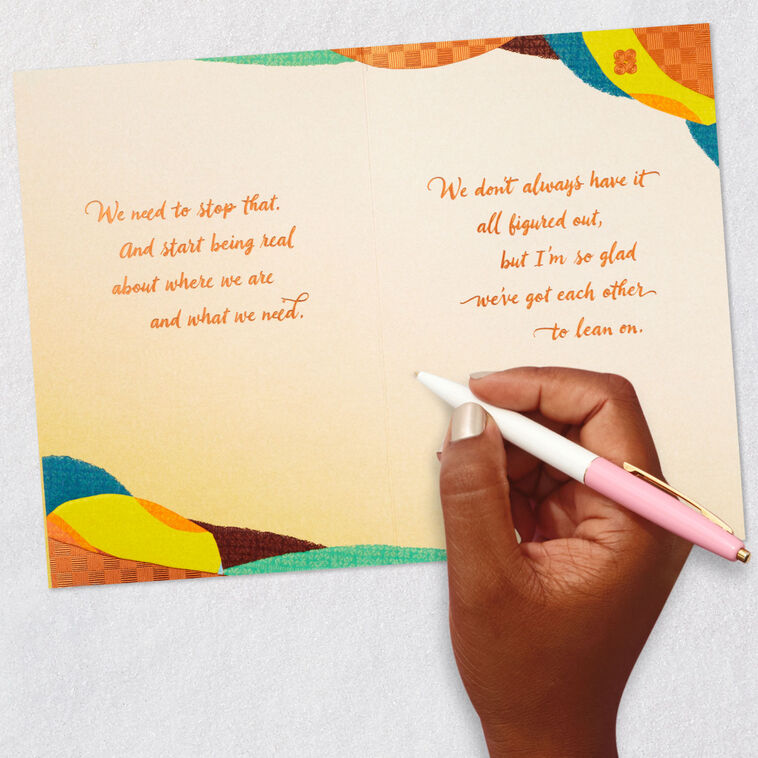 We need to stop that.
And start being real
about where we are
and what we need.
We don't always have it
all figured out,
but I'm so glad
we've got each other
to lean on.